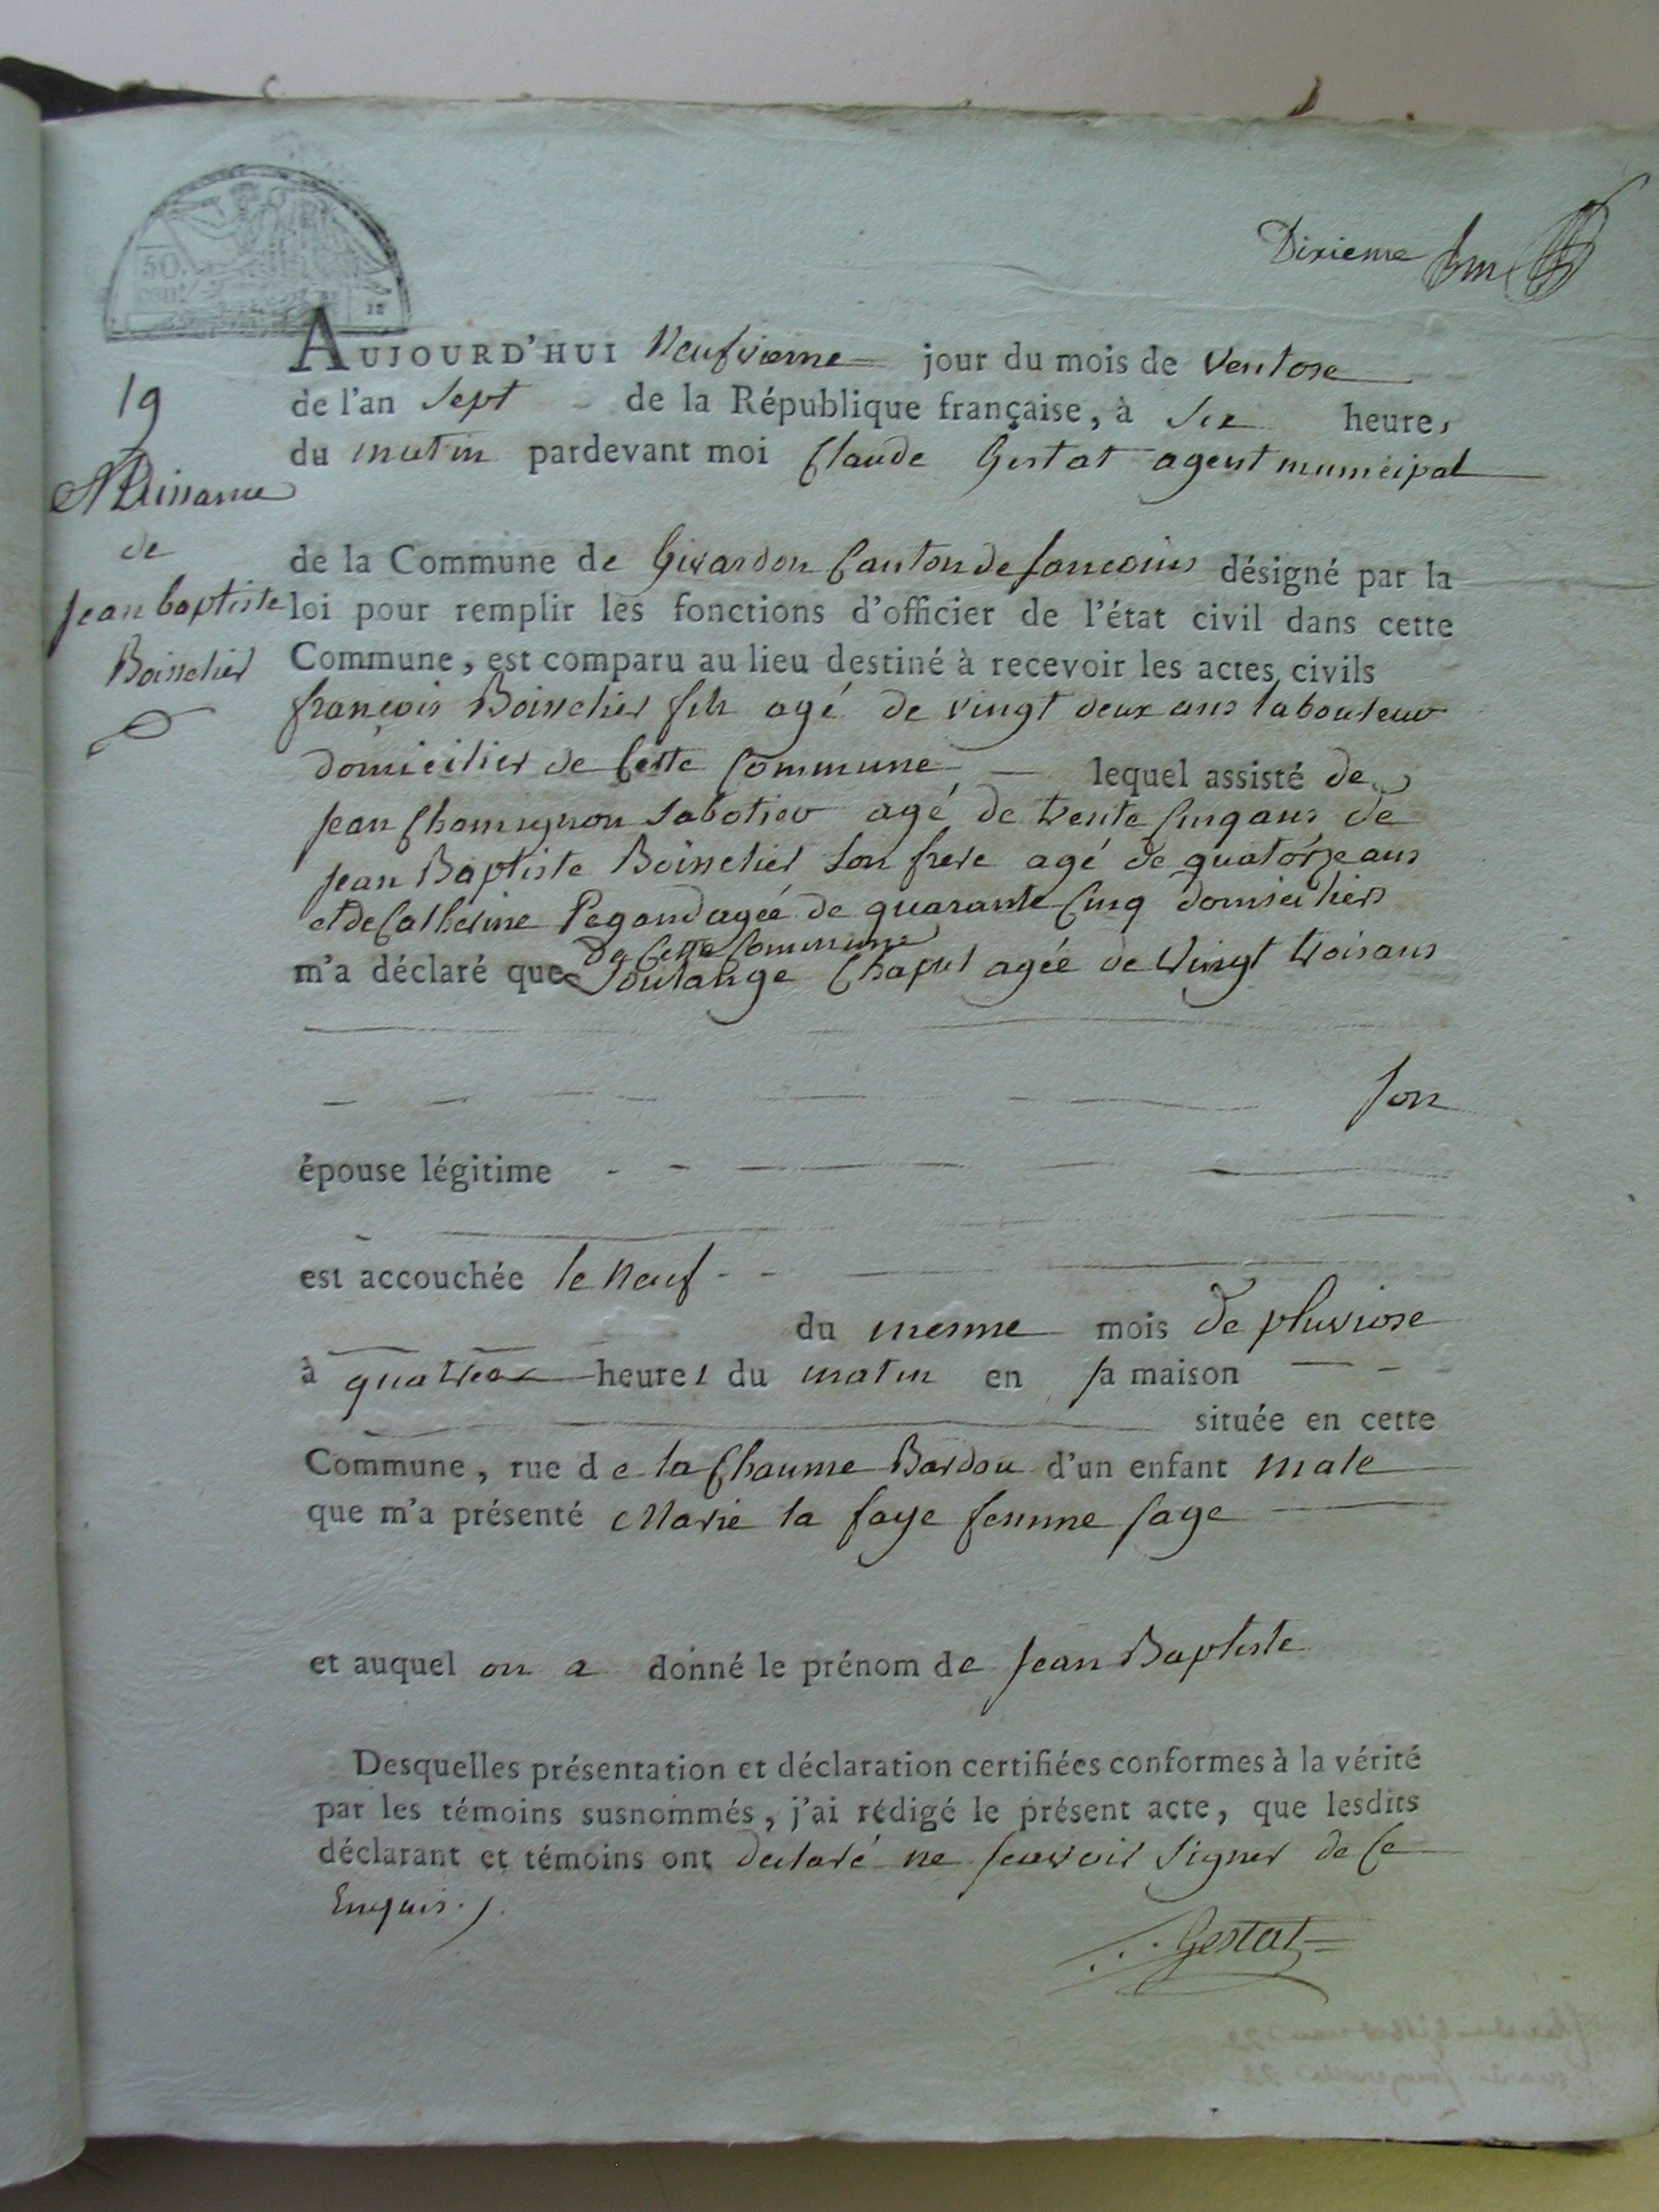 50.
cent.
Dixieme
AUJOURD'HUI Neufvieme jour du mois de Ventose
de l'an Sept de la République française, à Six heures
du matin pardevant moi Claude Gestat agent municipal
19
Naissance
de
Jean baptiste
Boisselier
de la Commune de Givardon Canton de Sancoins désigné par la
loi pour remplir les fonctions d'officier de l'état civil dans cette
Commune, est comparu au lieu destiné à recevoir les actes civils
françois Boisselier fils agé de vingt deux ans laboureur
domicilier de Cette Commune lequel assisté de
Jean Chamignon Sabotier agé de trente Cinq ans de
Jean Baptiste Boisselier son frere agé de quatorze ans
et de Catherine Pegand agée de quarante Cinq domiciliers
de Cette Commune
m'a déclaré que Soulange Chapel agée de Vingt trois ans
son
épouse légitime
est accouchée le neuf
du mesme mois de pluviose
à quatre heures du matin en sa maison
située en cette
Commune, rue de la Chaume Bardou d'un enfant male
que m'a présenté Marie la faye femme sage
et auquel on a donné le prénom de Jean Baptiste
Desquelles présentation et déclaration certifiées conformes à la vérité
par les témoins susnommés, j'ai rédigé le présent acte, que lesdits
déclarant et témoins ont declaré ne scavoir signer de Ce
Enquis.
Gestat